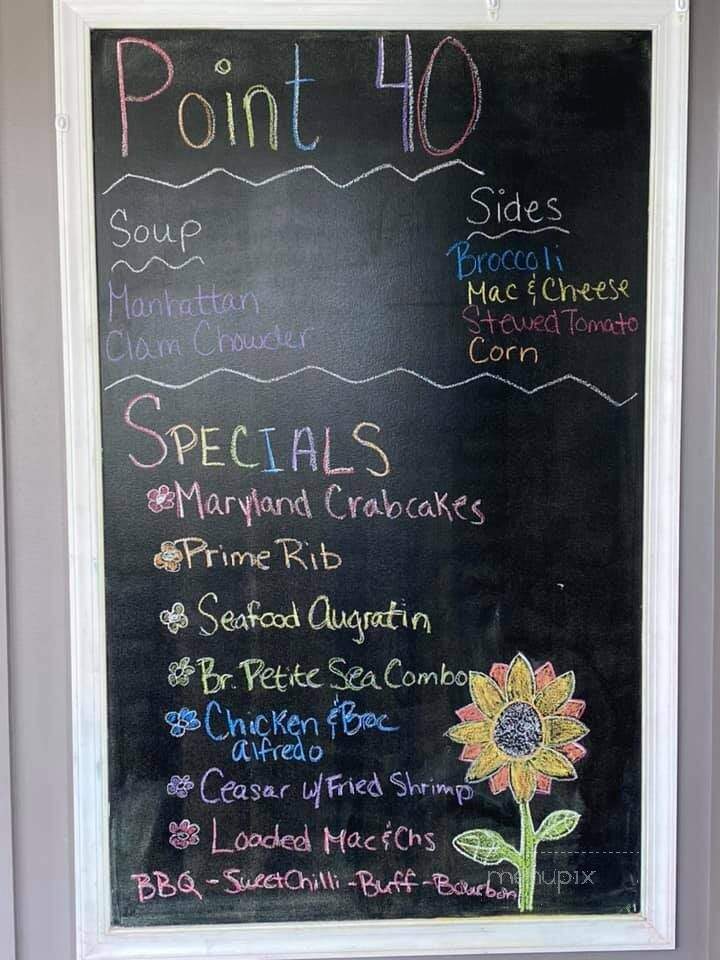 Point 40
Soup
Manhattan
Clam Chowder
Sides
Broccoli
Mac & Cheese
Stewed Tomato
Corn
SPECIALS
Maryland Crabcakes
Prime Rib
Seafood Augratin
Br. Petite Sea Combo
Chicken & Broc
alfredo
Ceasar w/ Fried Shrimp
Loaded Mac & Chs
BBQ - Sweet Chilli - Buff - Bourbon
menupix